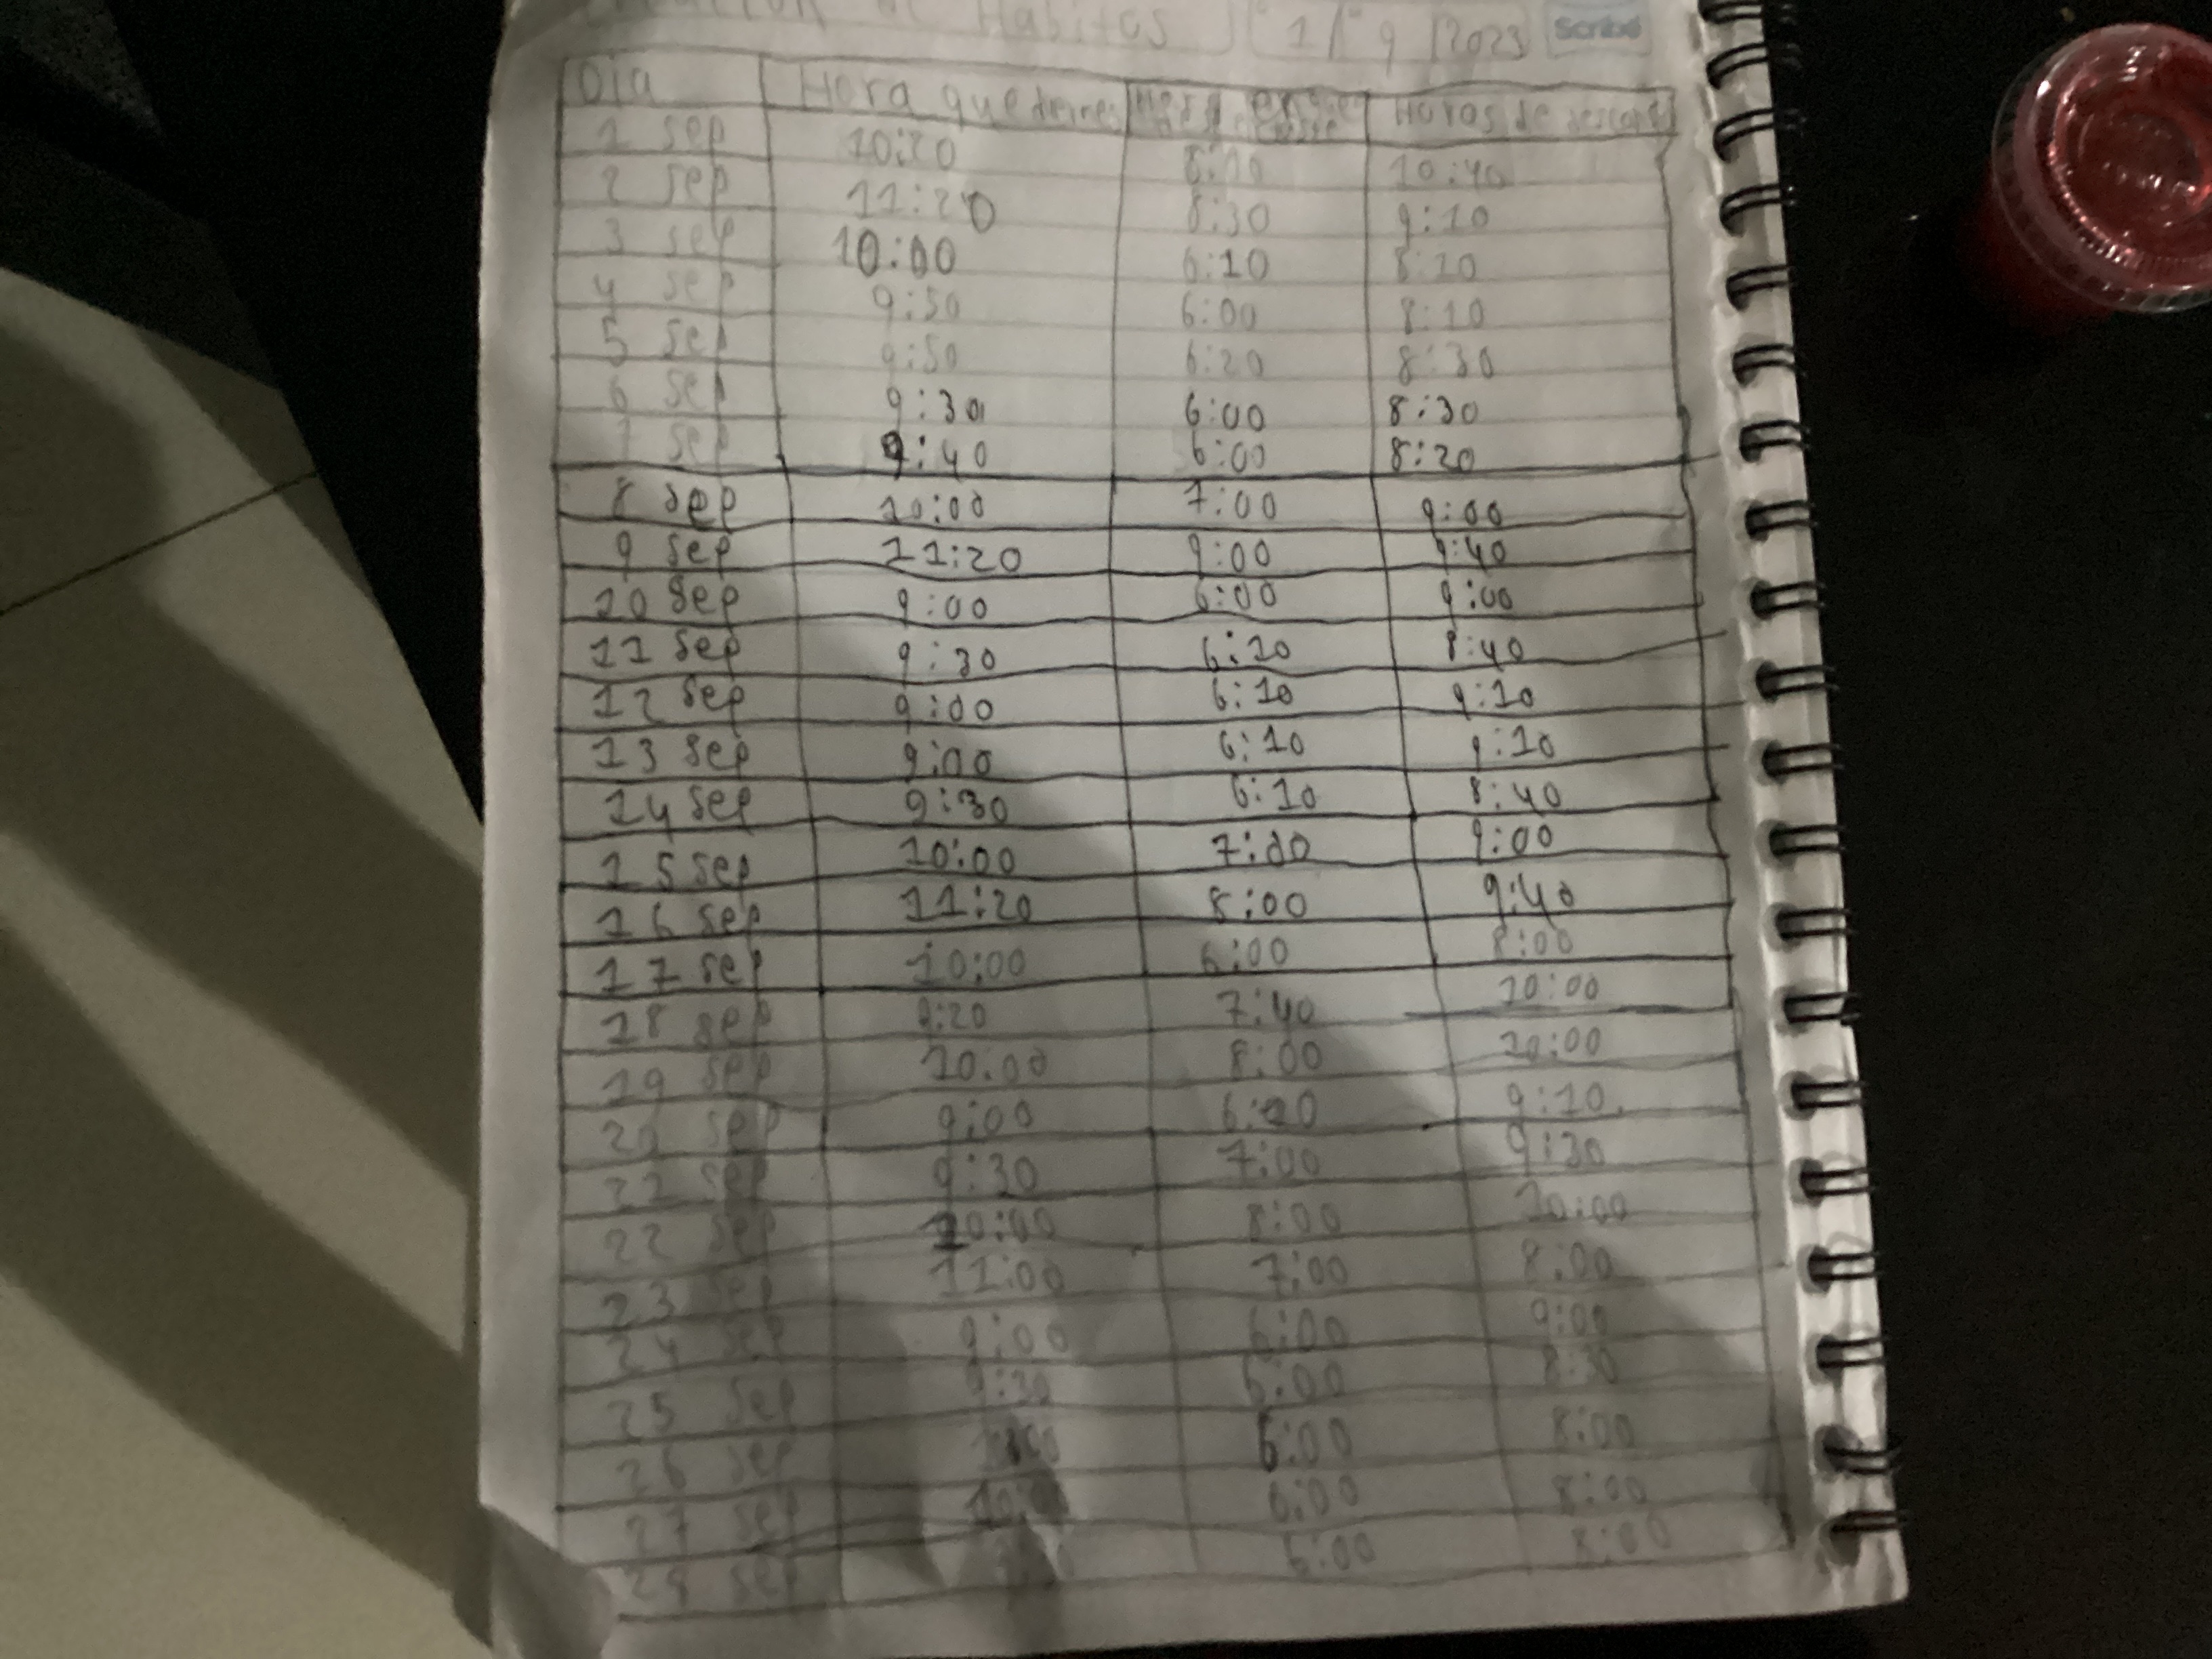 de Habitos 1 / 9 / 2023 Scribe
Dia Hora que Horas de
1 sep 10:20 10:40
2 sep 11:20 8:30 9:10
3 sep 10:00 6:10 8:10
4 sep 9:50 6:00 8:10
5 sep 9:50 6:20 8:30
6 sep 9:30 6:00 8:30
7 sep 9:40 6:00 8:20
8 sep 10:00 7:00 9:00
9 sep 11:20 9:00 9:40
10 sep 9:00 6:00 9:00
11 sep 9:30 6:10 8:40
12 sep 9:00 6:10 9:10
13 sep 9:00 6:10 9:10
14 sep 9:30 6:10 8:40
15 sep 10:00 7:00 9:00
16 sep 11:20 8:00 9:40
17 sep 10:00 6:00 8:00
18 sep 9:20 7:40 10:00
19 sep 10:00 8:00 10:00
20 sep 9:00 9:10
21 sep 9:30 7:00 9:30
22 sep 10:00 8:00 10:00
23 sep 11:00 7:00 8:00
24 sep 9:00 6:00 9:00
25 sep 9:30 6:00 8:30
26 sep 6:00 8:00
27 sep 6:00 8:00
sep 6:00 8:00